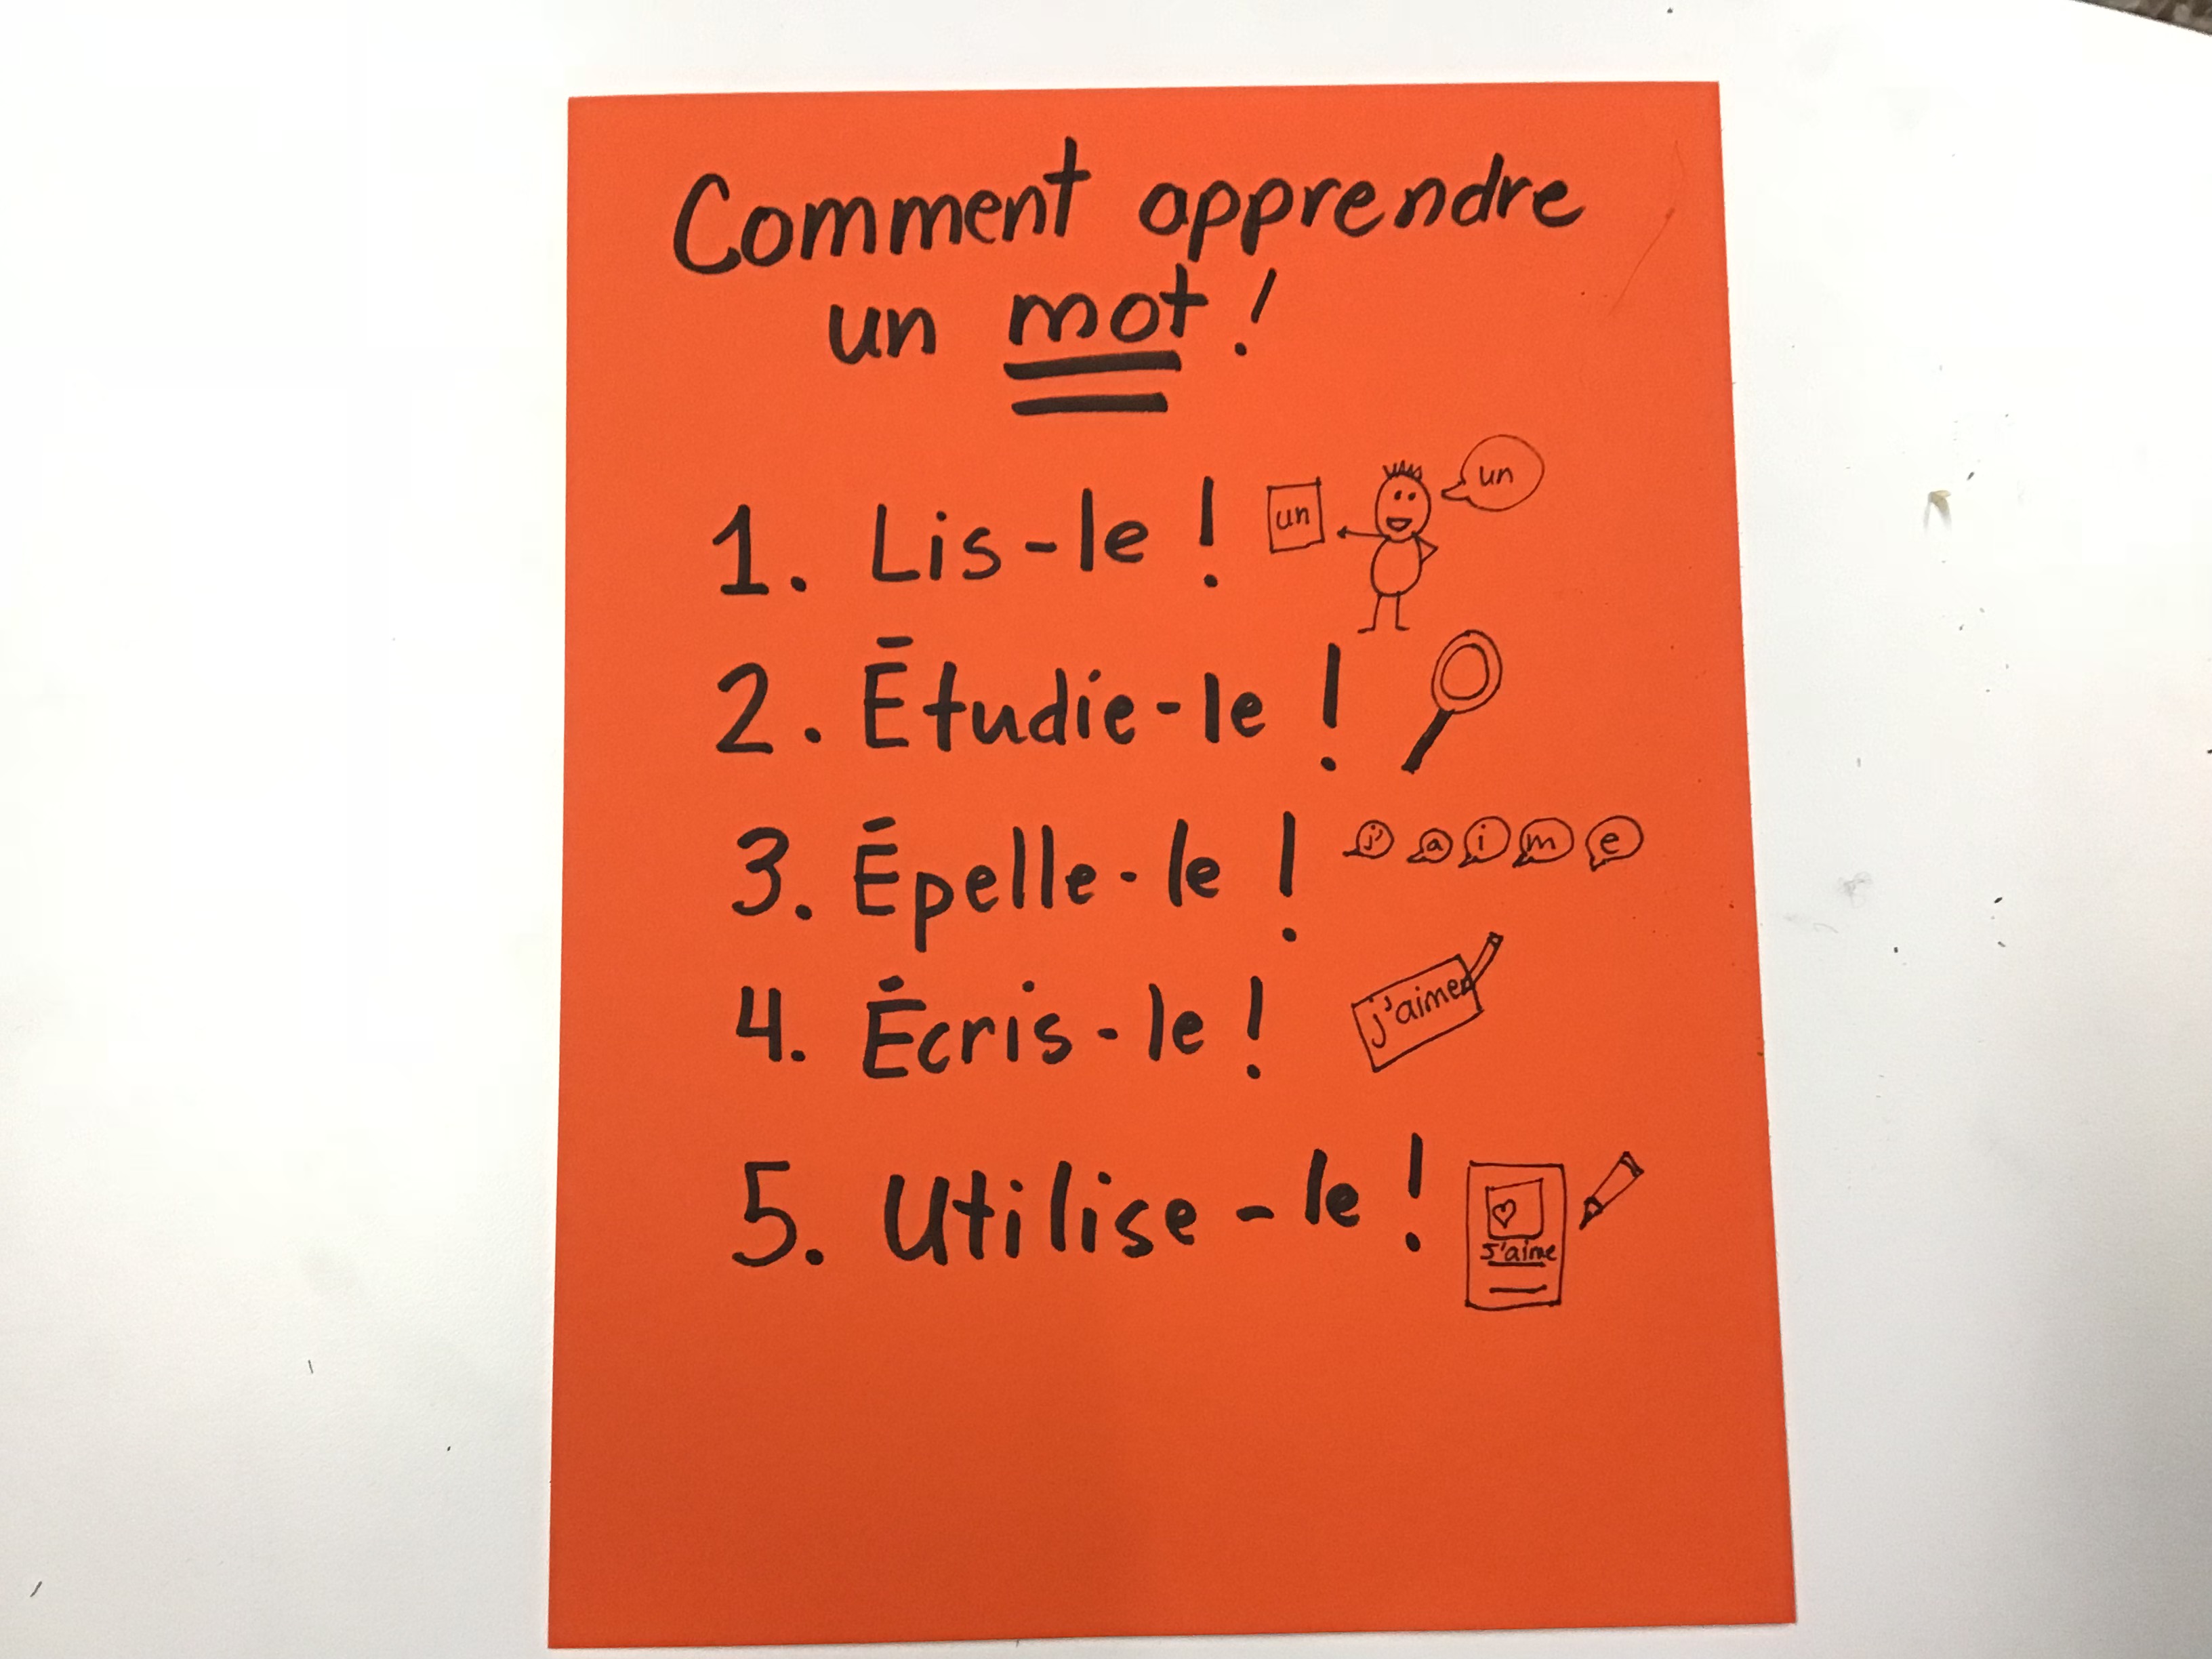 Comment apprendre
un mot !
1. Lis-le ! un un
2. Étudie-le !
3. Épelle-le ! j' a i m e
4. Écris-le ! j'aime
5. Utilise-le ! J'aime